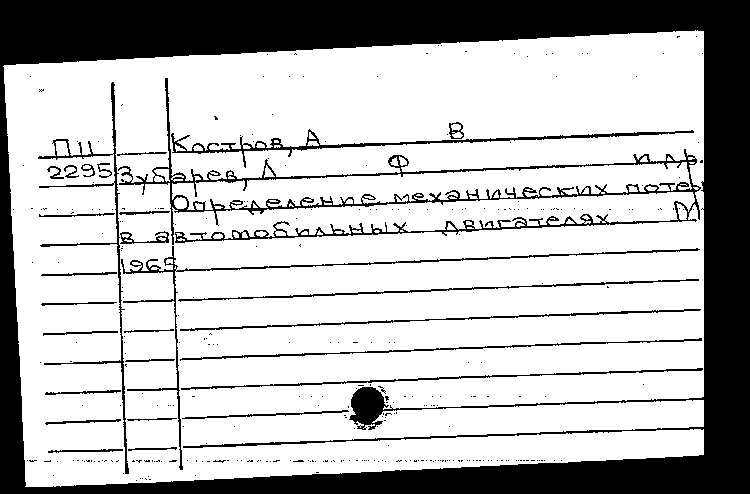 П11 Костров, А В
2295 Зубарев, Л Ф и др.
Определение механических потер
в автомобильных двигателях М
1965